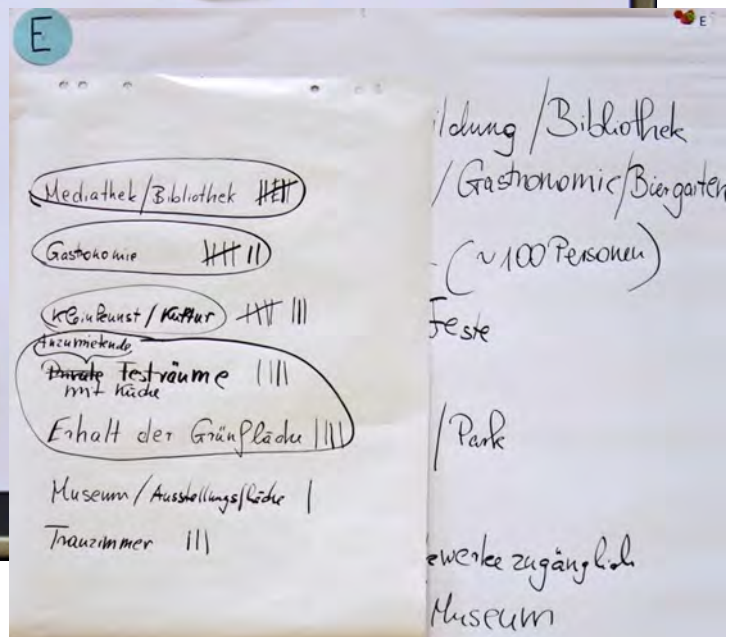 E
E
Mediathek/Bibliothek 卌
Gastronomie 卌 ||
Kleinkunst/Kultur 卌 |||
Anzumietende
Private Festräume ||||
mit Küche
Erhalt der Grünfläche ||||
Museum/Ausstellungsfläche |
Trauzimmer |||
ildung/Bibliothek
/Gastronomie/Biergarten
(~100 Personen)
Feste
/Park
ewerke zugänglich
Museum